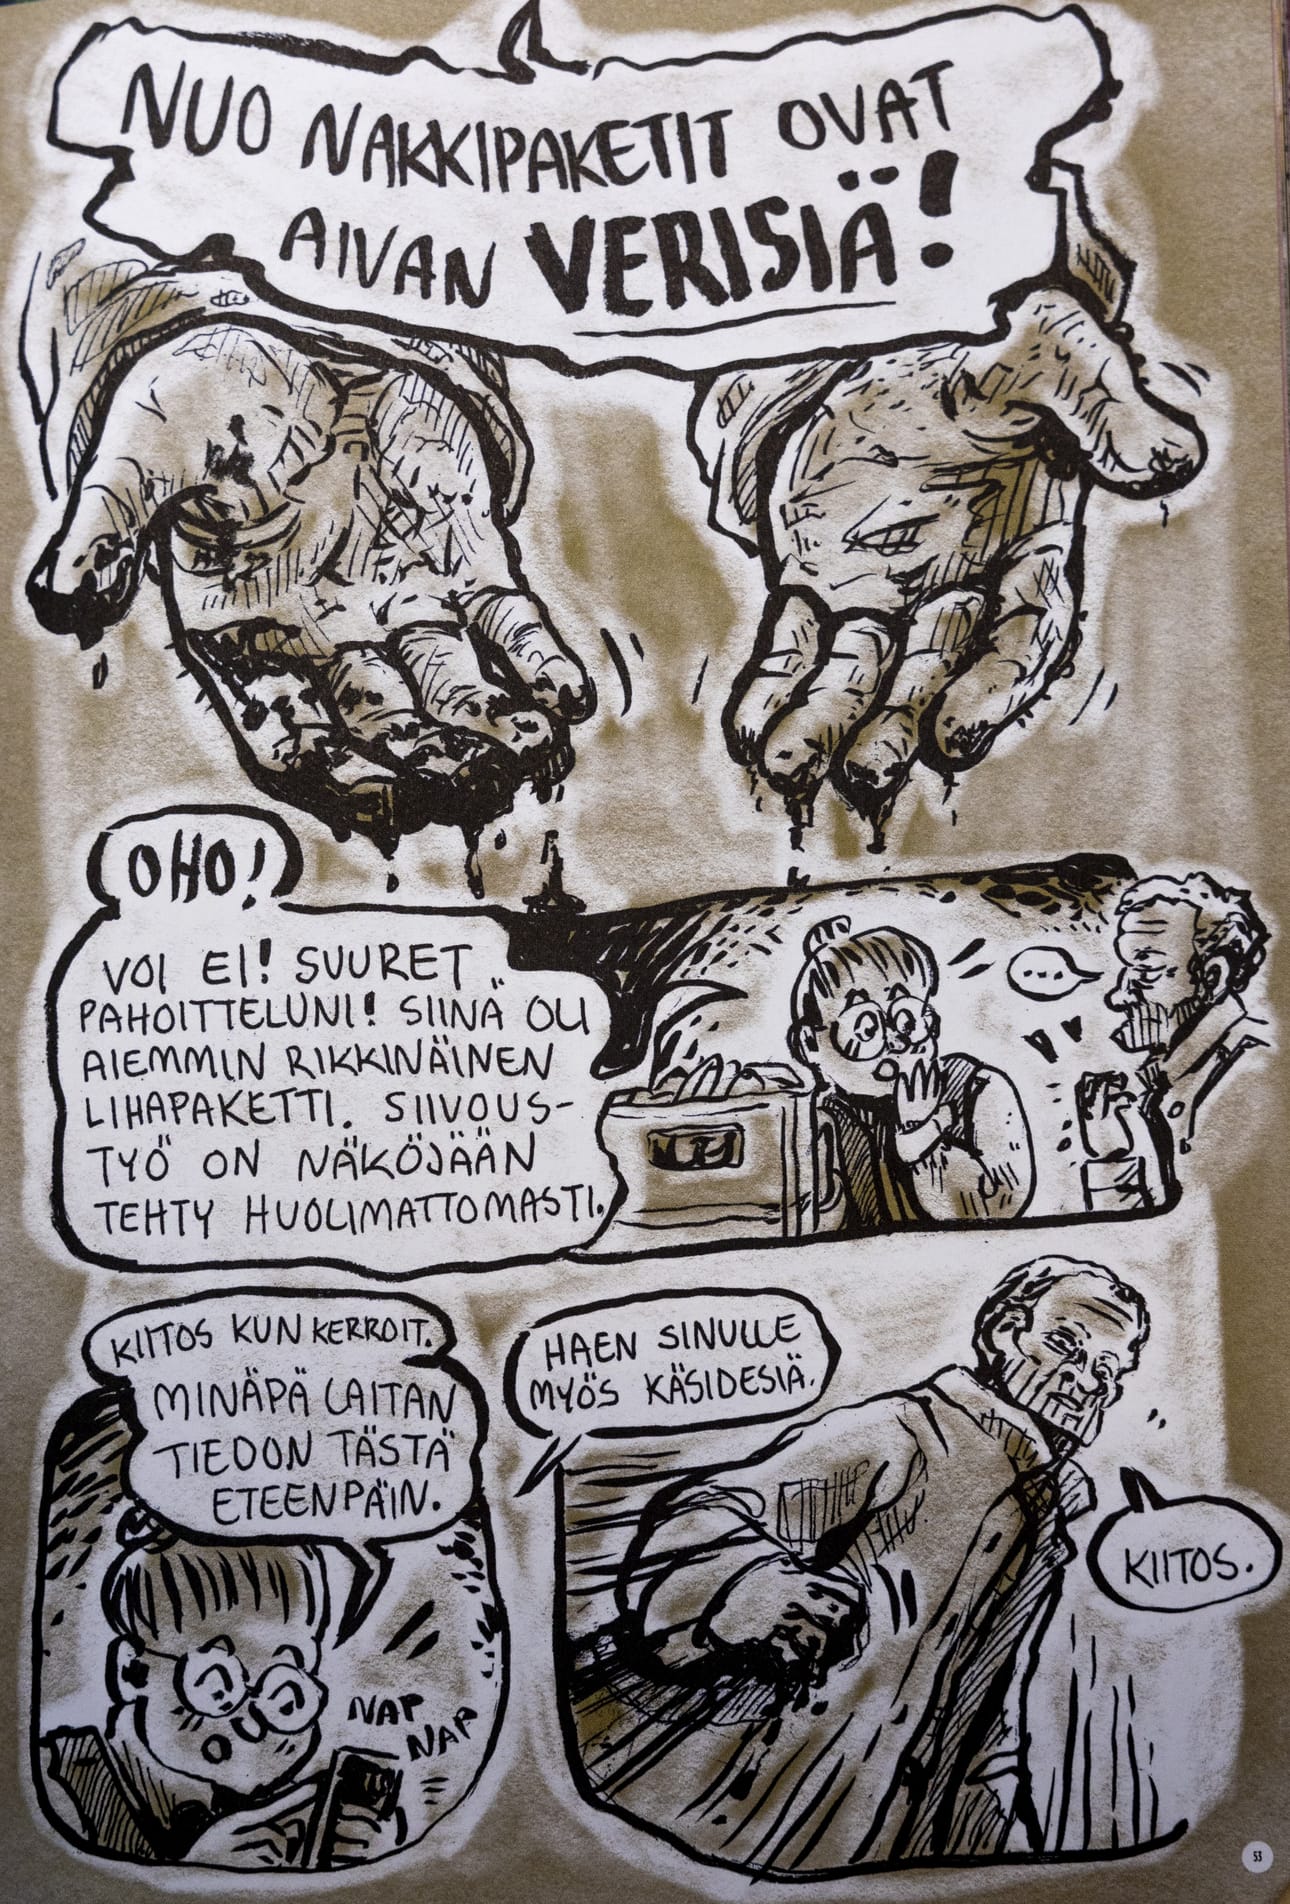 NUO NAKKIPAKETIT OVAT
AIVAN VERISIÄ!
OHO!
VOI EI! SUURET
PAHOITTELUNI! SIINÄ OLI
AIEMMIN RIKKINÄINEN
LIHAPAKETTI. SIIVOUS-
TYÖ ON NÄKÖJÄÄN
TEHTY HUOLIMATTOMASTI.
...
KIITOS KUN KERROIT.
MINÄPÄ LAITAN
TIEDON TÄSTÄ
ETEENPÄIN.
NAP
NAP
HAEN SINULLE
MYÖS KÄSIDESIÄ.
KIITOS.
53